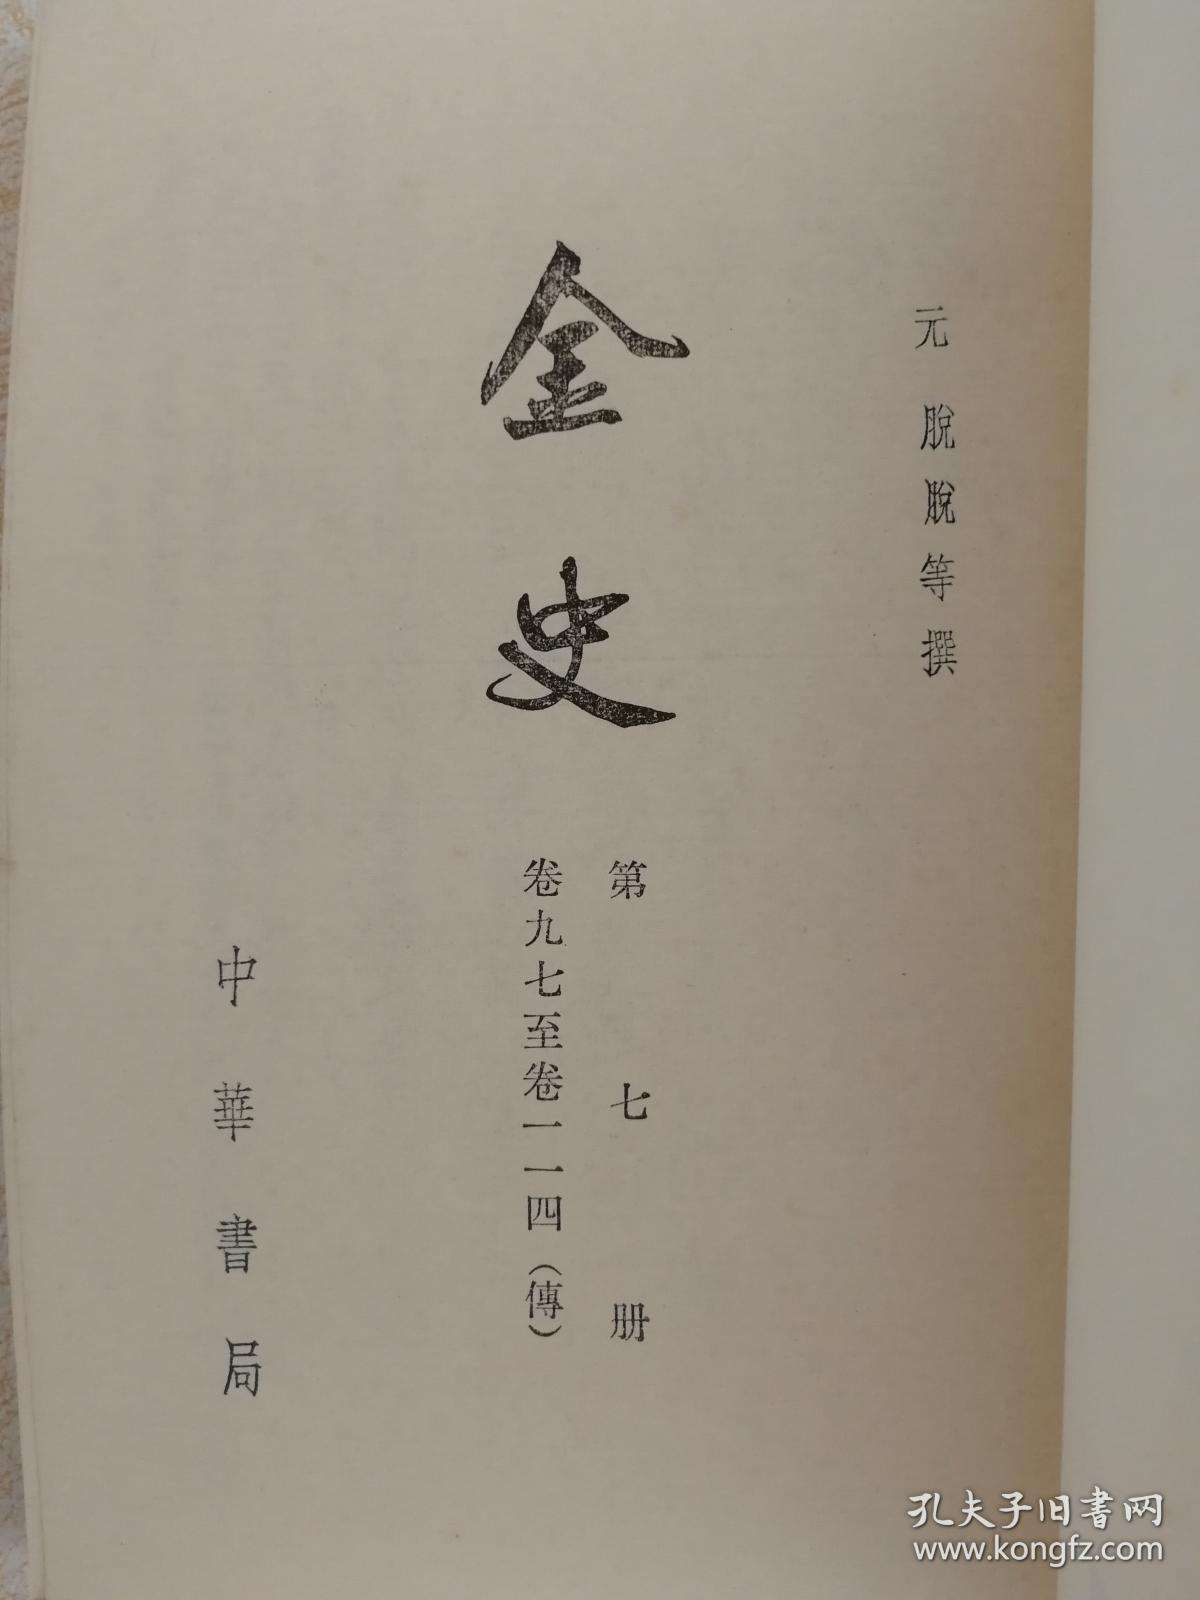 元 脫脫等撰
金史
第七册
卷九七至卷一一四(傳)
中華書局
孔夫子旧书网
www.kongfz.com